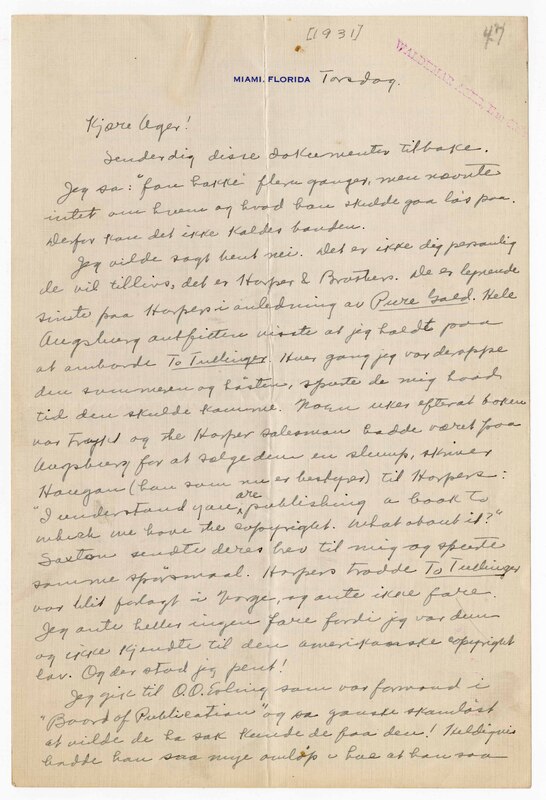 [1931]
47
WALDEMAR AGER
MIAMI, FLORIDA Torsdag.
Kjære Ager!
Sender dig disse dokumenter tilbake.
Jeg sa: "fan hakke" flere ganger, men nævnte
intet om hvem og hvad han skulde gaa løs paa.
Derfor kan det ikke kaldes banden.
Jeg vilde sagt bent nei. Det er ikke dig personlig
de vil tillivs, det er Harper & Brothers. De er
sinte paa Harpers i anledning av Pure Gold. Hele
Augsburg outfitten visste at jeg holdt paa
at omarbeide To Tullinger. Hver gang jeg var deroppe
den sommeren og høsten, spurte de mig hvad
tid den skulde komme. Noen uker efterat boken
var trykt og the Harper salesman hadde været paa
Augsburg for at sælge dem en slump, skriver
Haugan (han som nu er bestyrer) til Harpers:
"I understand you are publishing a book to
which we have the copyright. What about it?"
Saxton sendte deres brev til mig og spurte
samme spørsmaal. Harpers trodde To Tullinger
var blit forlagt i Norge, og ante ikke fare.
Jeg ante heller ingen fare fordi jeg var dum
og ikke kjendte til den amerikanske copyright
lov. Og der stod jeg pent!
Jeg gik til O.O. Erling som var formand i
"Board of Publication" og sa ganske skamløst
at vilde de ha sak kunde de faa den! Heldigvis
hadde han saa mye omløp i hue at han saa